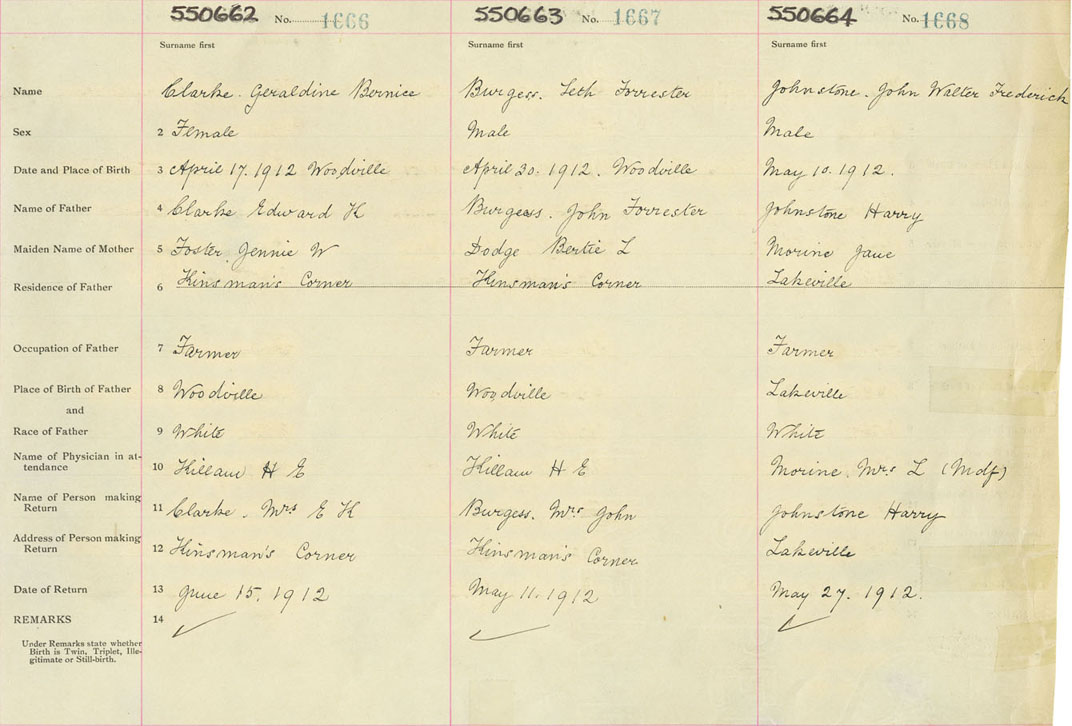 550662 No. 1666 550663 No. 1667 550664 No. 1668
Surname first Surname first Surname first
Name Clarke. Geraldine Bernice Burgess. Seth Forrester Johnstone. John Walter Frederick
Sex 2 Female Male Male
Date and Place of Birth 3 April 17. 1912 Woodville April 30. 1912. Woodville May 10. 1912.
Name of Father 4 Clarke Edward K Burgess. John Forrester Johnstone Harry
Maiden Name of Mother 5 Foster. Jennie W Dodge Bertie L Morine Jane
Residence of Father 6 Kinsman's Corner Kinsman's Corner Lakeville
Occupation of Father 7 Farmer Farmer Farmer
Place of Birth of Father 8 Woodville Woodville Lakeville
and
Race of Father 9 White White White
Name of Physician in at-
tendance 10 Killam H E Killam H E Morine. Mrs L (Mdf)
Name of Person making
Return 11 Clarke. Mrs E K Burgess. Mrs John Johnstone Harry
Address of Person making
Return 12 Kinsman's Corner Kinsman's Corner Lakeville
Date of Return 13 June 15. 1912 May 11. 1912 May 27. 1912.
REMARKS 14
Under Remarks state whether
Birth is Twin, Triplet, Ille-
gitimate or Still-birth.